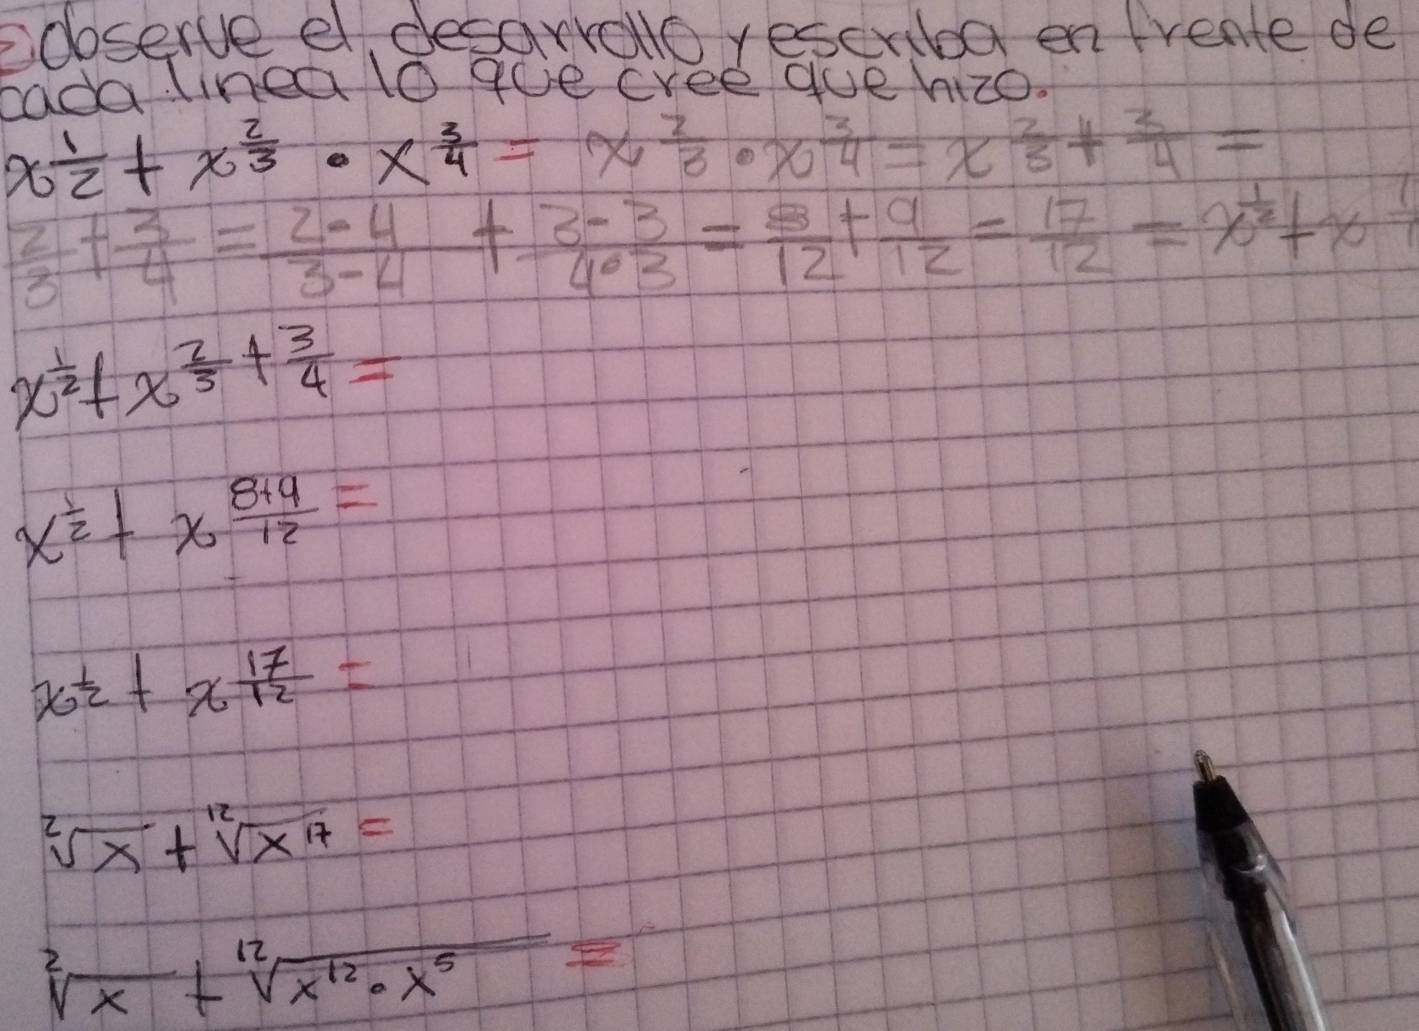 observe el desarrollo y escriba en frente de
cada linea lo que cree que hizo.
x^{1/2} + x^{2/3} • x^{3/4} = x^{2/3} • x^{3/4} = x^{2/3 + 3/4} =
2/3 + 3/4 = 2-4/3-4 + 3-3/4•3 = 8/12 + 9/12 = 17/12 = x^{1/2} + x
x^{1/2} + x^{2/3 + 3/4} =
x^{1/2} + x^{8+9/12} =
x^{1/2} + x^{17/12} =
²√x + ¹²√x^{17} =
²√x + ¹²√x^{12} • x^5 =